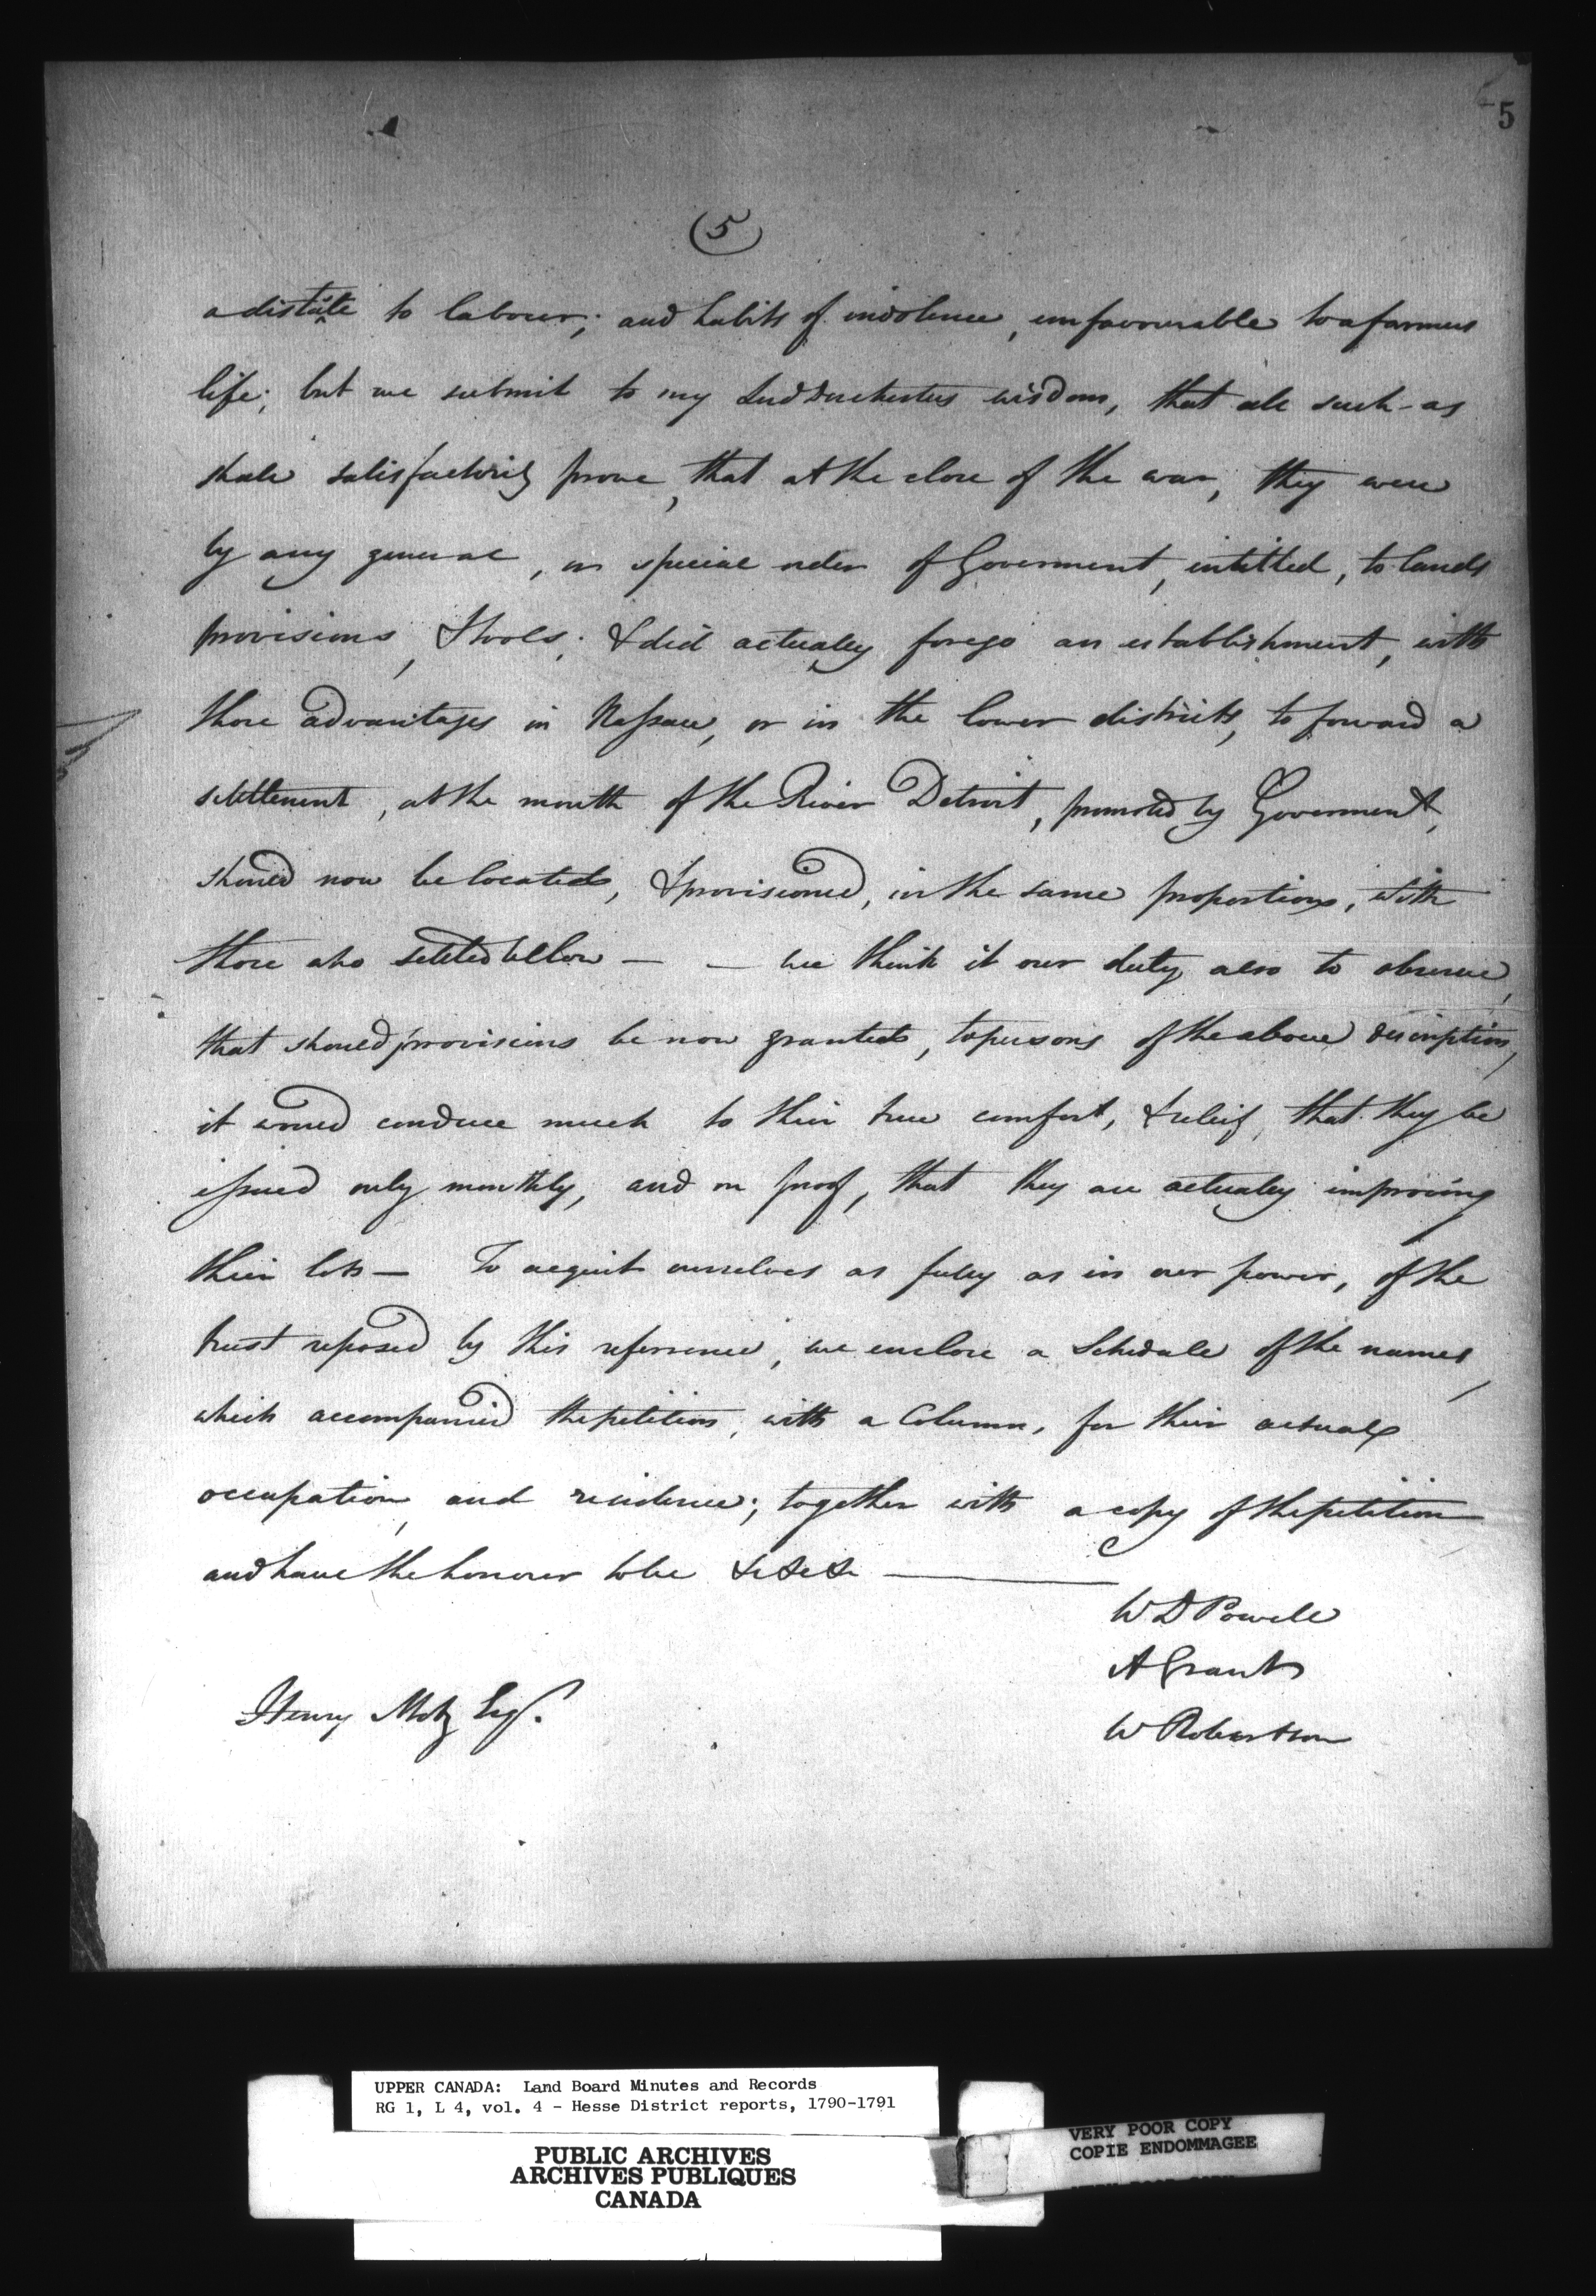 5
(5)
a distate to labour; and habits of indolence, unfavourable to a farmers
life; but we submit to my Lord Dorchesters wisdom, that all such as
shall satisfactorily prove, that at the close of the war, they were
by any general, or special order of Goverment, intitled, to lands
provisions, & tools; & did actually forego an establishment, with
those advantages in Nassau, or in the lower districts, to forward a
settlement, at the mouth of the River Detroit, promoted by Goverment,
should now be located, & provisioned, in the same proportions, with
those who settled bellow — — we think it our duty also to observe,
that should provisions be now granted, to persons of the above description,
it would conduce much to their true comfort, & releif, that they be
issued only monthly, and on proof, that they are actually improving
their lots — To acquit ourselves as fully as in our power, of the
trust reposed by this reference, we enclose a Schedule of the names,
which accompanied the petition, with a Column, for their actual
occupation, and residence; together with a copy of the petition
and have the honour to be &c &c &c —
W D Powell
A Grant
Henry Motz Esqr.
W Robertson
UPPER CANADA: Land Board Minutes and Records
RG 1, L 4, vol. 4 - Hesse District reports, 1790-1791
PUBLIC ARCHIVES
ARCHIVES PUBLIQUES
CANADA
VERY POOR COPY
COPIE ENDOMMAGEE